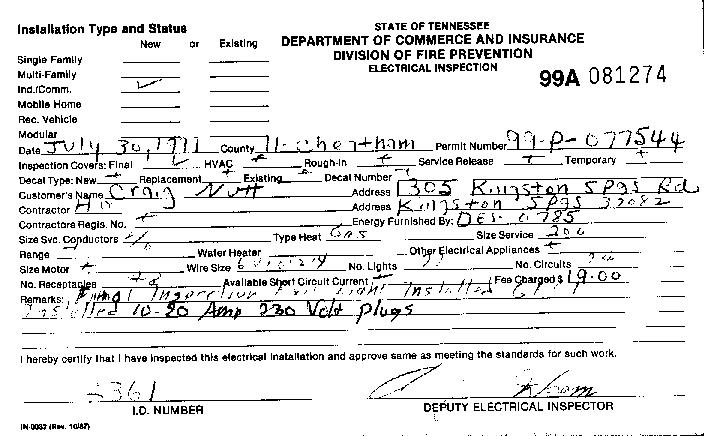 Installation Type and Status
New or Existing
STATE OF TENNESSEE
DEPARTMENT OF COMMERCE AND INSURANCE
DIVISION OF FIRE PREVENTION
ELECTRICAL INSPECTION
99A 081274
Single Family
Multi-Family
Ind./Comm. ✓
Mobile Home
Rec. Vehicle
Modular
Date July 30, County 11-Cheatham Permit Number 99-P-077544
Inspection Covers: Final ✓ HVAC Rough-in Service Release Temporary
Decal Type: New Replacement Existing Decal Number
Customer's Name Craig Nutt Address 1305 Kingston SPgs Rd
Contractor Address Kingston SPgs 37082
Contractors Regis. No. Energy Furnished By: DES
Size Svc. Conductors Type Heat Gas Size Service 200
Range Water Heater Other Electrical Appliances
Size Motor Wire Size No. Lights No. Circuits
No. Receptacles Available Short Circuit Current Fee Charged $ 19.00
Remarks: Final Inspection Light Installed
Installed 10-20 Amp 230 Volt Plugs
I hereby certify that I have inspected this electrical installation and approve same as meeting the standards for such work.
361
I.D. NUMBER
DEPUTY ELECTRICAL INSPECTOR
IN-0032 (Rev. 10/87)